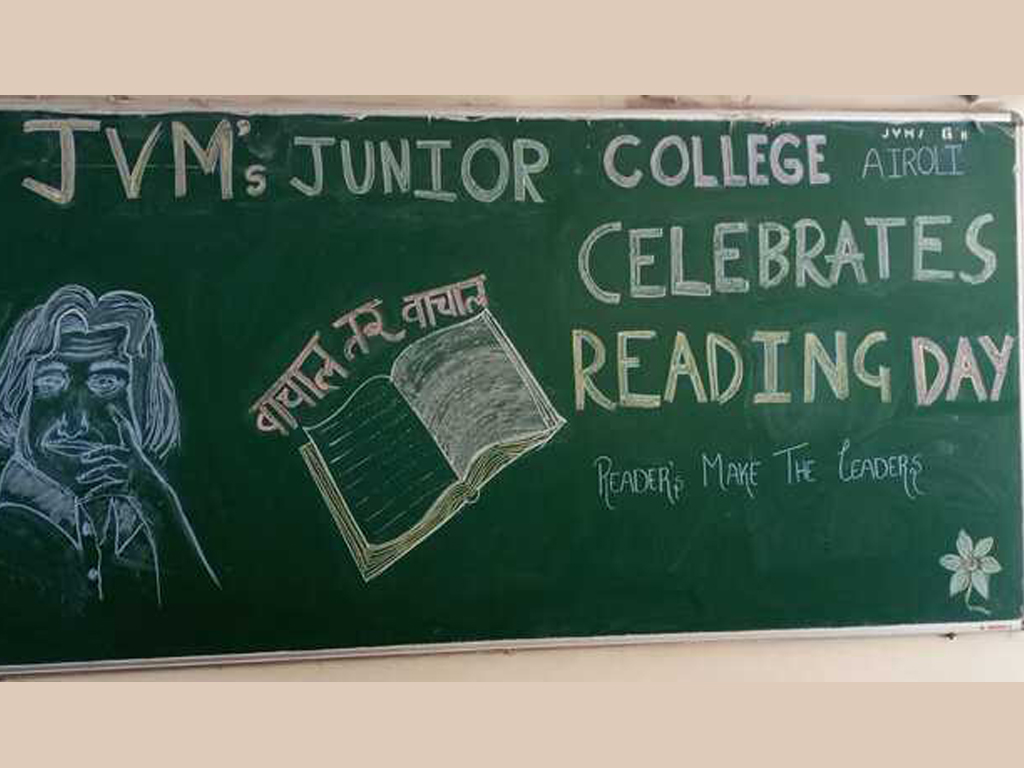 JVM's JUNIOR COLLEGE AIROLI
CELEBRATES
READING DAY
वाचाल तर वाचाल
READER'S MAKE THE LEADERS